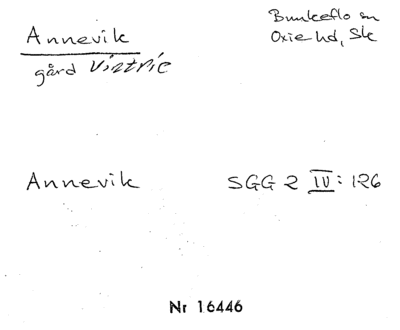 Annevik
gård Vintrie
Bunkeflo sn
Oxie hd, Sk
Annevik SGG 2 IV: 126
Nr 16446